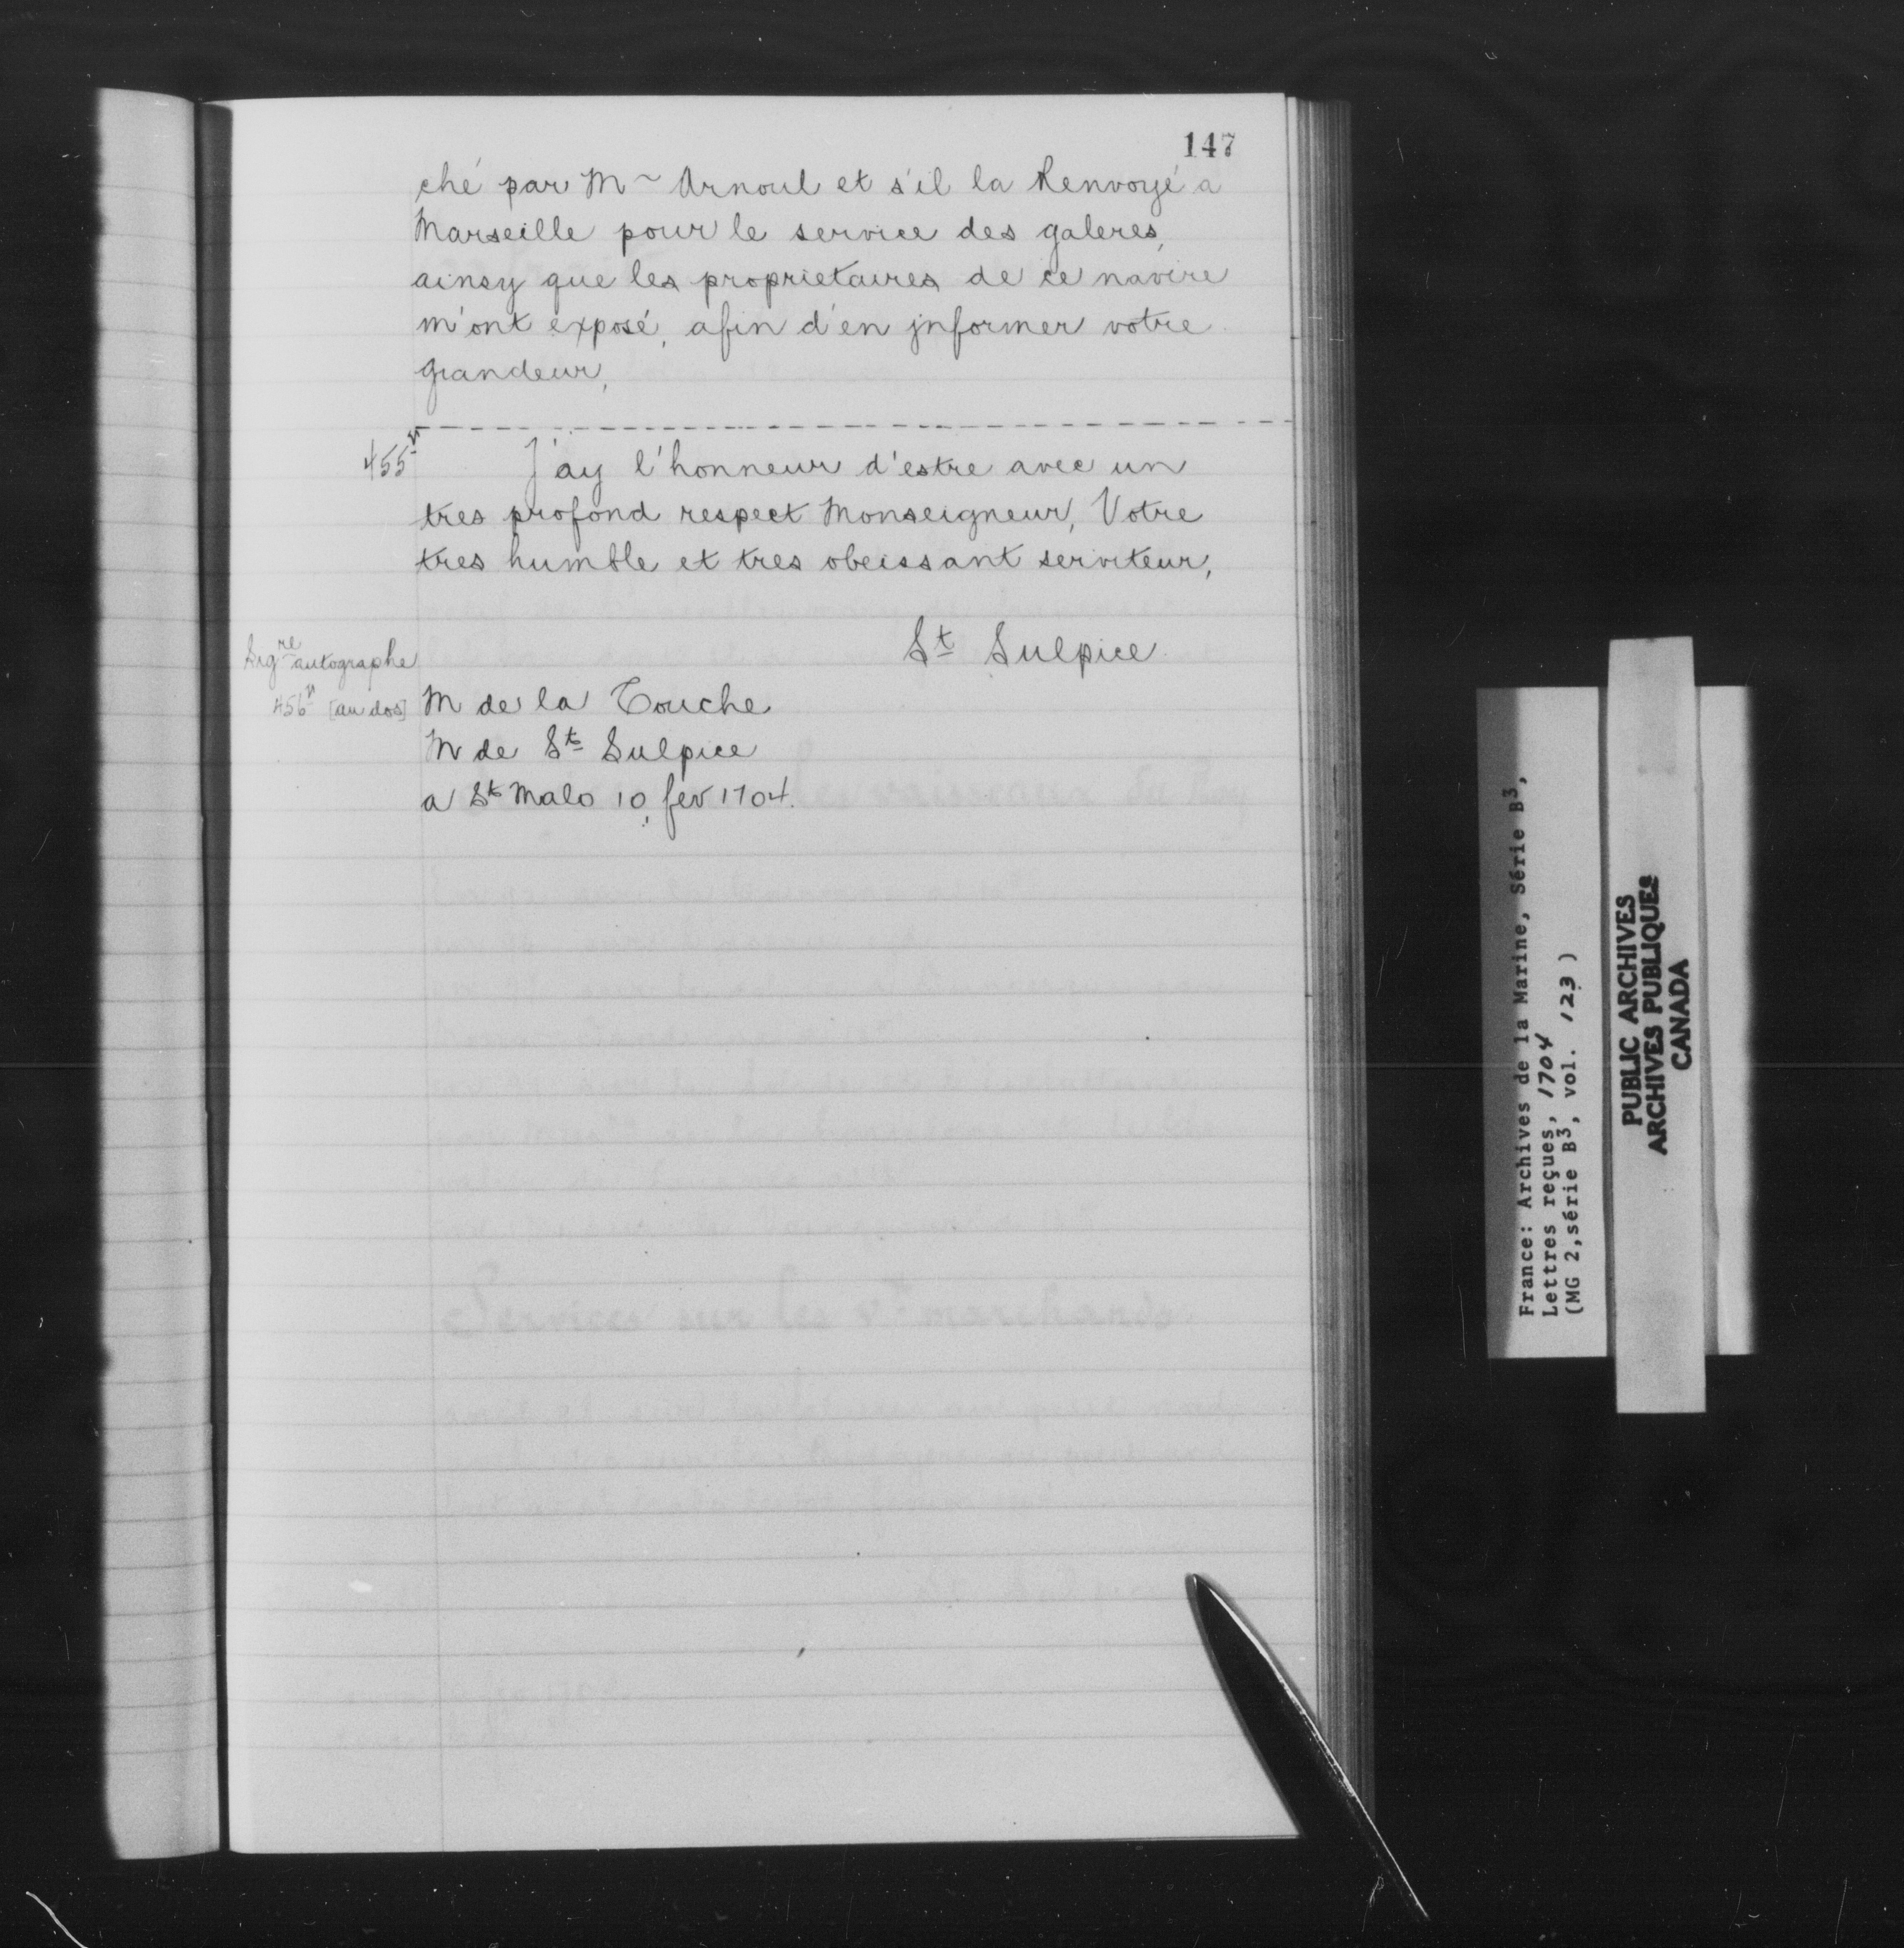 147
ché par Mr Arnoul et s'il la Renvoyé a
Marseille pour le service des galeres,
ainsy que les proprietaires de ce navire
m'ont exposé, afin d'en jnformer votre
grandeur,
455 vo
J'ay l'honneur d'estre avec un
tres profond respect Monseigneur, Votre
tres humble et tres obeissant serviteur,
St Sulpice
Sigre autographe
456 vo [au dos]
M de la Touche
M de St Sulpice
a St Malo 10, fev 1704.
Services sur les vx marchands
France: Archives de la Marine, Série B3,
Lettres reçues, 1704
(MG 2, série B3, vol. 123)
PUBLIC ARCHIVES
ARCHIVES PUBLIQUES
CANADA